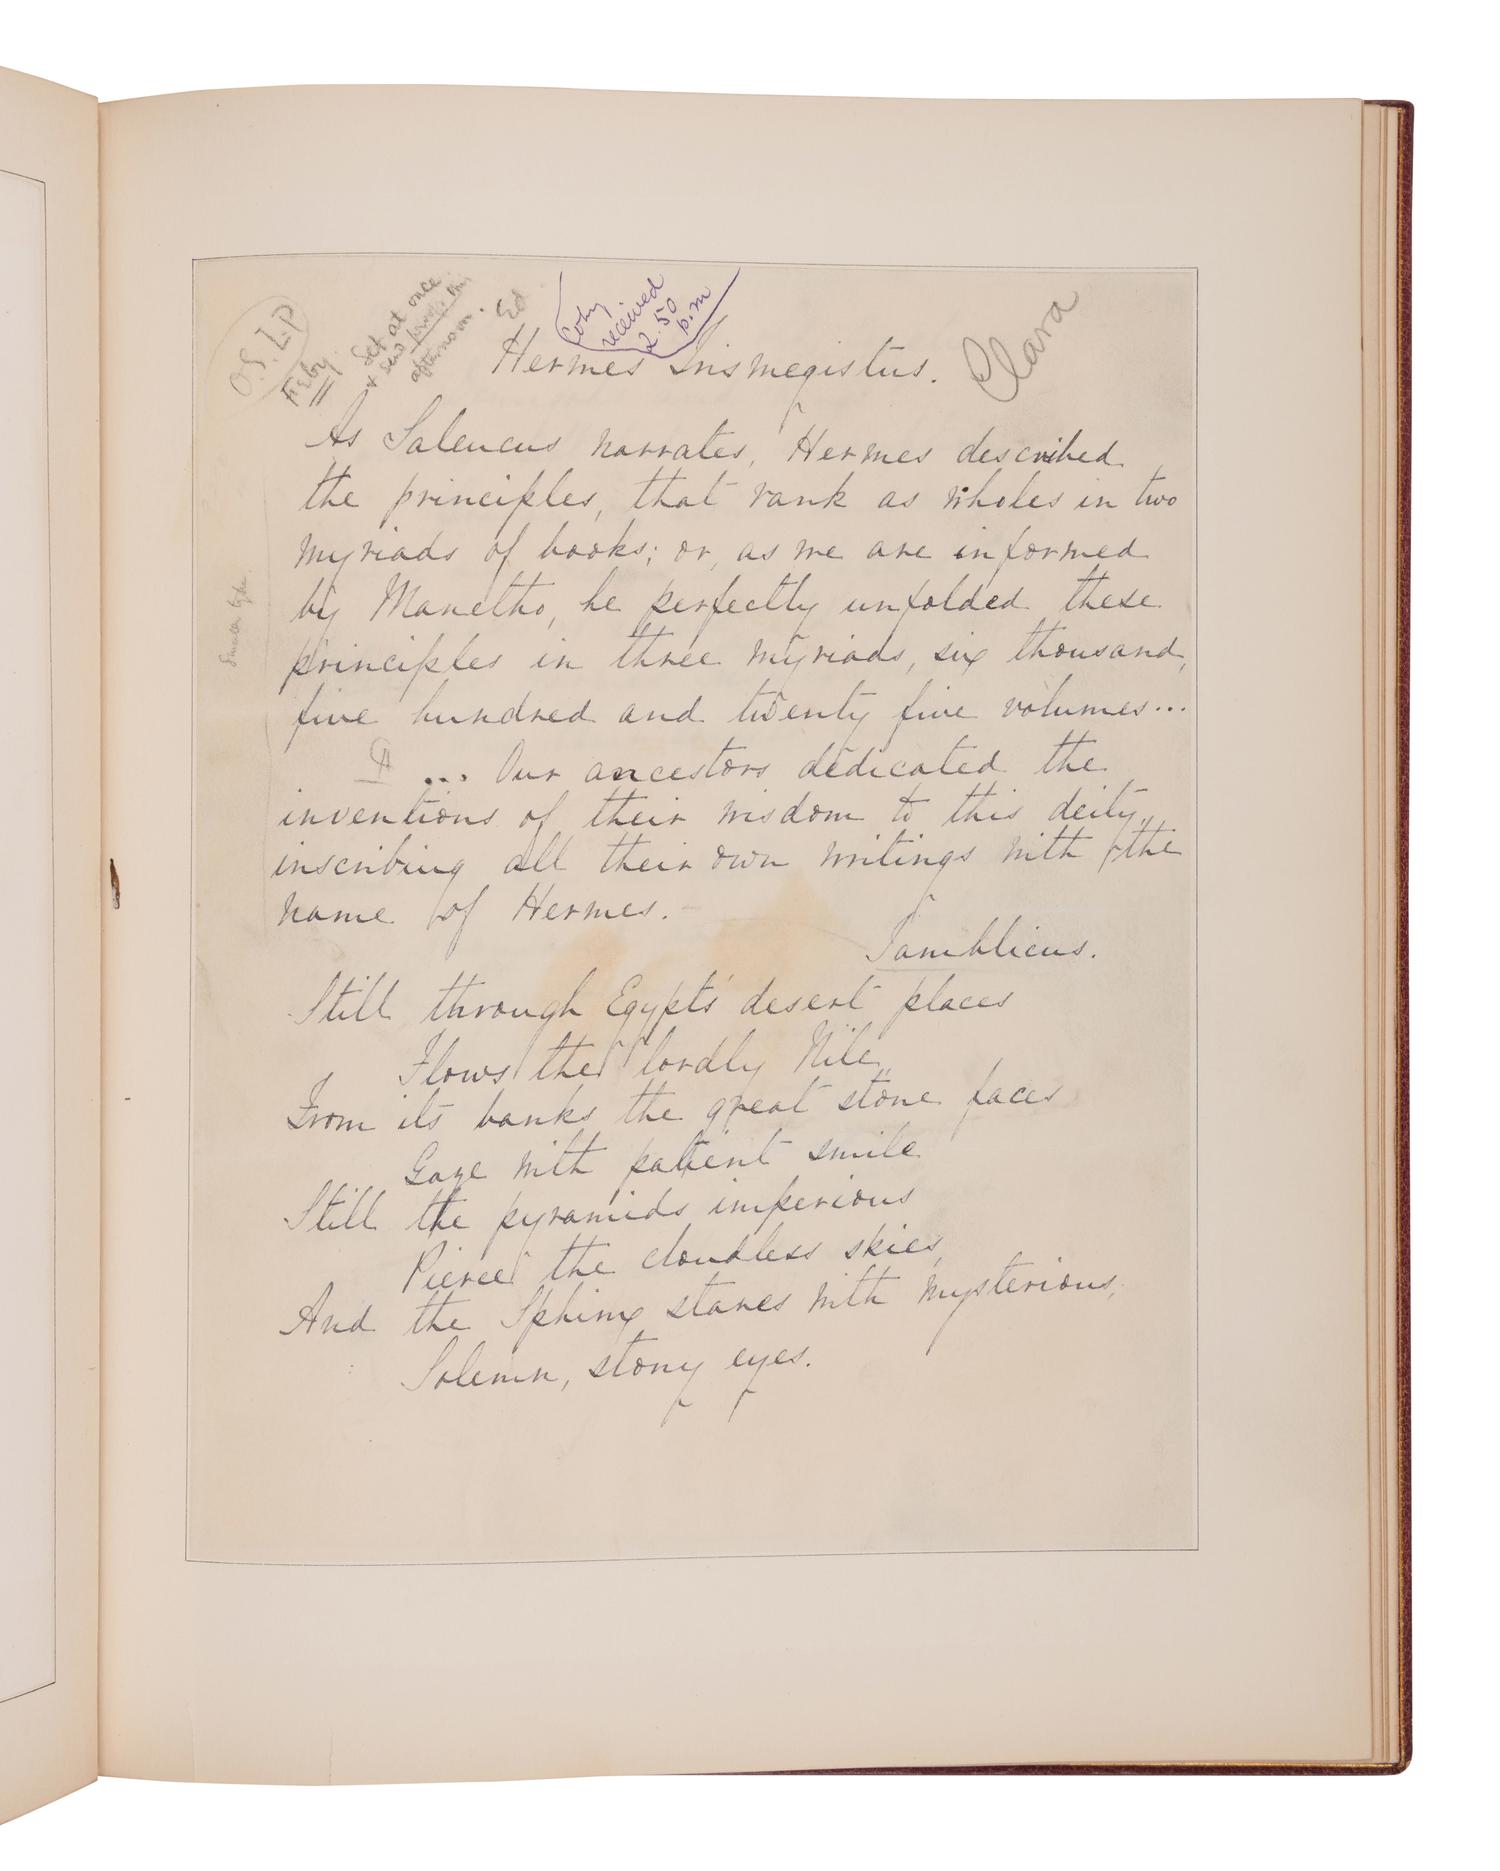 O. S. L. P
Feby.
Set at once
& send proofs this
afternoon. Ed
Copy
received
2.50
p.m
Clara
Hermes Trismegistus.
As Saleucus narrates, Hermes described
the principles, that rank as wholes in two
myriads of books; or, as we are informed
by Manetho, he perfectly unfolded these
principles in three myriads, six thousand,
five hundred and twenty five volumes...
... Our ancestors dedicated the
inventions of their wisdom to this deity,
inscribing all their own writings with the
name of Hermes.
Iamblicus.
Still through Egypt's desert places
Flows the lordly Nile,
From its banks the great stone faces
Gaze with patient smile
Still the pyramids imperious
Pierce the cloudless skies,
And the Sphinx stares with mysterious,
Solemn, stony eyes.